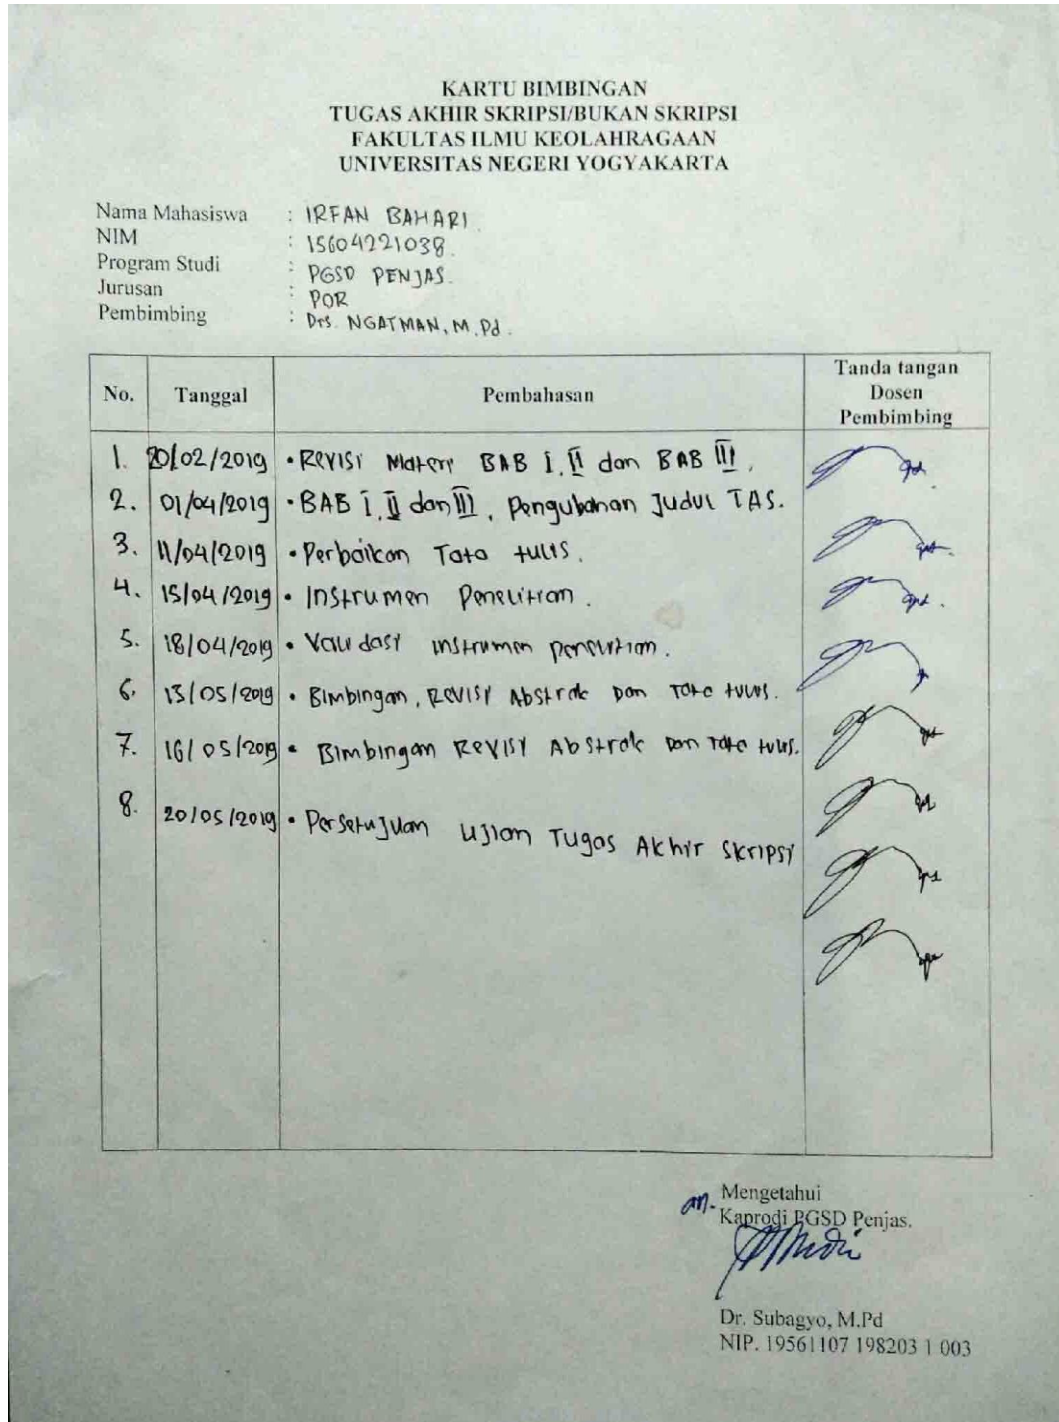 KARTU BIMBINGAN
TUGAS AKHIR SKRIPSI/BUKAN SKRIPSI
FAKULTAS ILMU KEOLAHRAGAAN
UNIVERSITAS NEGERI YOGYAKARTA
Nama Mahasiswa : IRFAN BAHARI
NIM : 15604221038.
Program Studi : PGSD PENJAS.
Jurusan : POR
Pembimbing : Drs. NGATMAN, M.Pd.
No. Tanggal Pembahasan Tanda tangan Dosen Pembimbing
1. 20/02/2019 • Revisi Materi BAB I, II dan BAB III.
2. 01/04/2019 • BAB I, II dan III, Pengubahan Judul TAS.
3. 11/04/2019 • Perbaikan Tata tulis.
4. 15/04/2019 • Instrumen Penelitian.
5. 18/04/2019 • Validasi instrumen penelitian.
6. 13/05/2019 • Bimbingan, Revisi Abstrak Dan Tata tulis.
7. 16/05/2019 • Bimbingan Revisi Abstrak Dan Tata tulis.
8. 20/05/2019 • Persetujuan Ujian Tugas Akhir Skripsi
an. Mengetahui
Kaprodi PGSD Penjas.
Dr. Subagyo, M.Pd
NIP. 19561107 198203 1 003